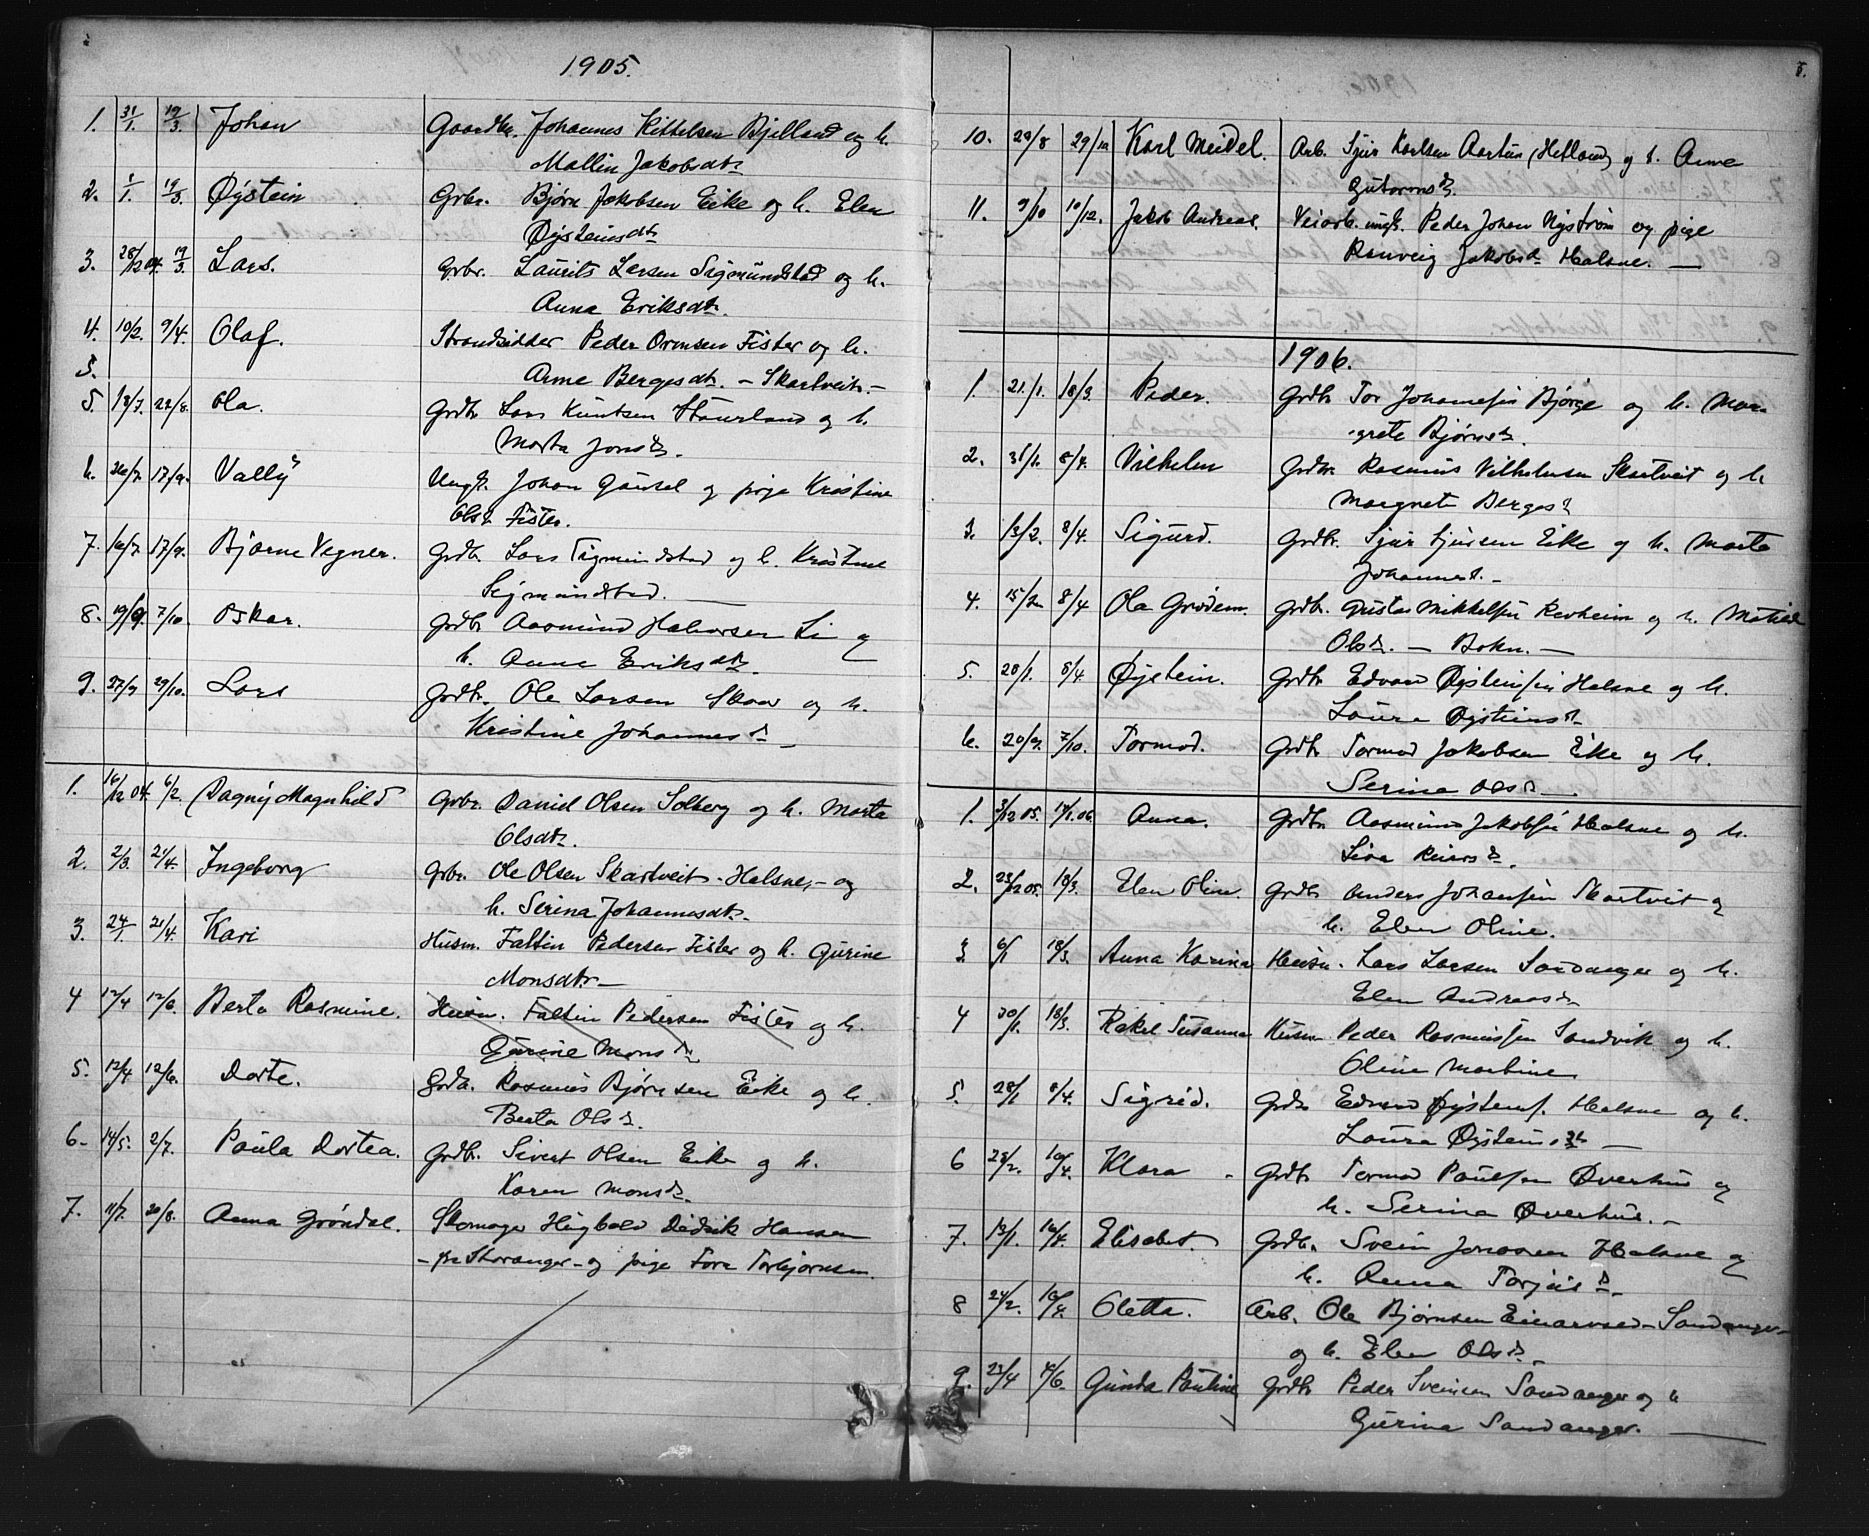 1905.
1. 31/1. 19/3. Johan Gaardbr. Johannes Kittelsen Bjelland og h.
Mallin Jakobsdtr
2. 1/1. 19/3. Øystein Grbr. Bjørn Jakobsen Eike og h. Elen
Øysteinsdtr
3. 28/12 04. 19/3. Lars. Grbr. Laurits Larsen Sigmundstad og h.
Anna Eriksdtr.
4. 10/2. 9/4. Olaf. Strandsidder Peder Ormsen Fister og h.
5.
Anne Bergesdtr. - Skartveit -
5. 13/7. 22/8. Ola. Grdbr Lars Knutsen Staurland og h.
Marta Jonsdr.
6. 26/7. 17/9. Vally Ungk. Johan Gausel og pige Kristine
Olsd. Fister.
7. 16/7. 17/9. Bjarne Vegner. Grdbr. Lars Sigmundstad og h. Kristine
Sigmundstad.
8. 19/9. 7/10. Oskar. Grdbr Aasmund Halvorsen Li og
h. Anne Eriksdtr.
9. 27/9 29/10. Lars Grdbr. Ole Larsen Skaar og h.
Kristine Johannesdr
1. 16/12 04. 6/2. Dagny Magnhild Grbr. David Olsen Solberg og h. Marta
Olsdtr.
2. 2/3. 21/4. Ingeborg Grbr. Ole Olsen Skartveit - Halsne, - og
h. Serina Johannesdtr.
3. 24/1. 21/4. Kari Husm. Faltin Pedersen Fister og h. Gurine
Monsdtr
4 12/4 12/6. Berta Rasmine. Husm. Faltin Pedersen Fister og h.
Gurine Monsdr
5. 12/4 12/6. Dorte. Grdbr. Rasmus Bjørnsen Eike og h.
Berta Olsdr.
6. 14/5. 2/7. Paula Dortea. Grdbr. Sivert Olsen Eike og h.
Karen Monsdr.
7. 11/7. 20/8. Anna Grøndal. Skomager Hugbald Didrik Hansen
- fra Storanger - og pige Tora Torbjørnsen.
10. 29/8 29/10 Karl Meidel. Arb. Sjur Karlsen Aartun (Hetland) og h. Anne
Gutormsdr.
11. 9/10 10/12. Jakob Andreas. Veiarb. ungk. Peder Johan Nystrøm og pige
Ranveig Jakobsdr Halsne.
1906.
1. 21./1. 18/3. Peder. Grdbr Tor Johannesen Bjørge og h. Mar-
grete Bjørnsdr.
2. 31/1. 8/4. Vilhelm Grdbr. Rasmus Vilhelmsen Skartveit og h
Margrete Bergesd
3. 13/2. 8/4. Sigurd. Grdbr. Sjur Sjursen Eike og h. Marta
Johannesd.
4. 15/2. 8/4 Ola Grødem. Grdbr. Gustav Mikkelsen Revheim og h. Matilde
Olsdr. - Bokn. -
5. 28/1. 8/4. Øystein. Grdbr Edvard Øysteinsen Halsne og h.
Laura Øysteinsdr
6. 20/9. 7/10. Tormod. Grdbr Tormod Jakobsen Eike og h.
Serine Olsdr
1. 3/12 05. 14/1.06. Anna. Grdbr Aasmund Jakobsen Halsne og h.
Siva dr.
2. 23/12 05. 18/3. Elen Oline. Grdbr Anders Johansen Skartveit og
h. Elen Oline.
3. 6/1 18/3. Anna Karina Husm. Lars Larsen Sandanger og h.
Elen Andreasdr
4 30/1. 18/3. Rakel Susanna Husm Peder Rasmussen Sandvik og h.
Oline Martine
5. 28/1 8/4. Sigrid. Grdbr Edvard Øysteins. Halsne og h.
Laura Øysteinsdtr
6 28/2. 16/4. Klara Grdbr Tormod Paulsen Øverhus og
h. Serina Øverhus.
7. 13/1. 16/4. Elisabet. Grdbr. Svein Jonassen Halsne og
h. Anna Torjusd.
8 24/2. 16/4. Oletta. Arb. Ole Bjørnsen - Sandanger
og h. Elen Olsdr.
9. 23/4 4/6. Gunda Pauline Grdbr Peder Sveinsen Sandanger og h
Gurina Sandanger.